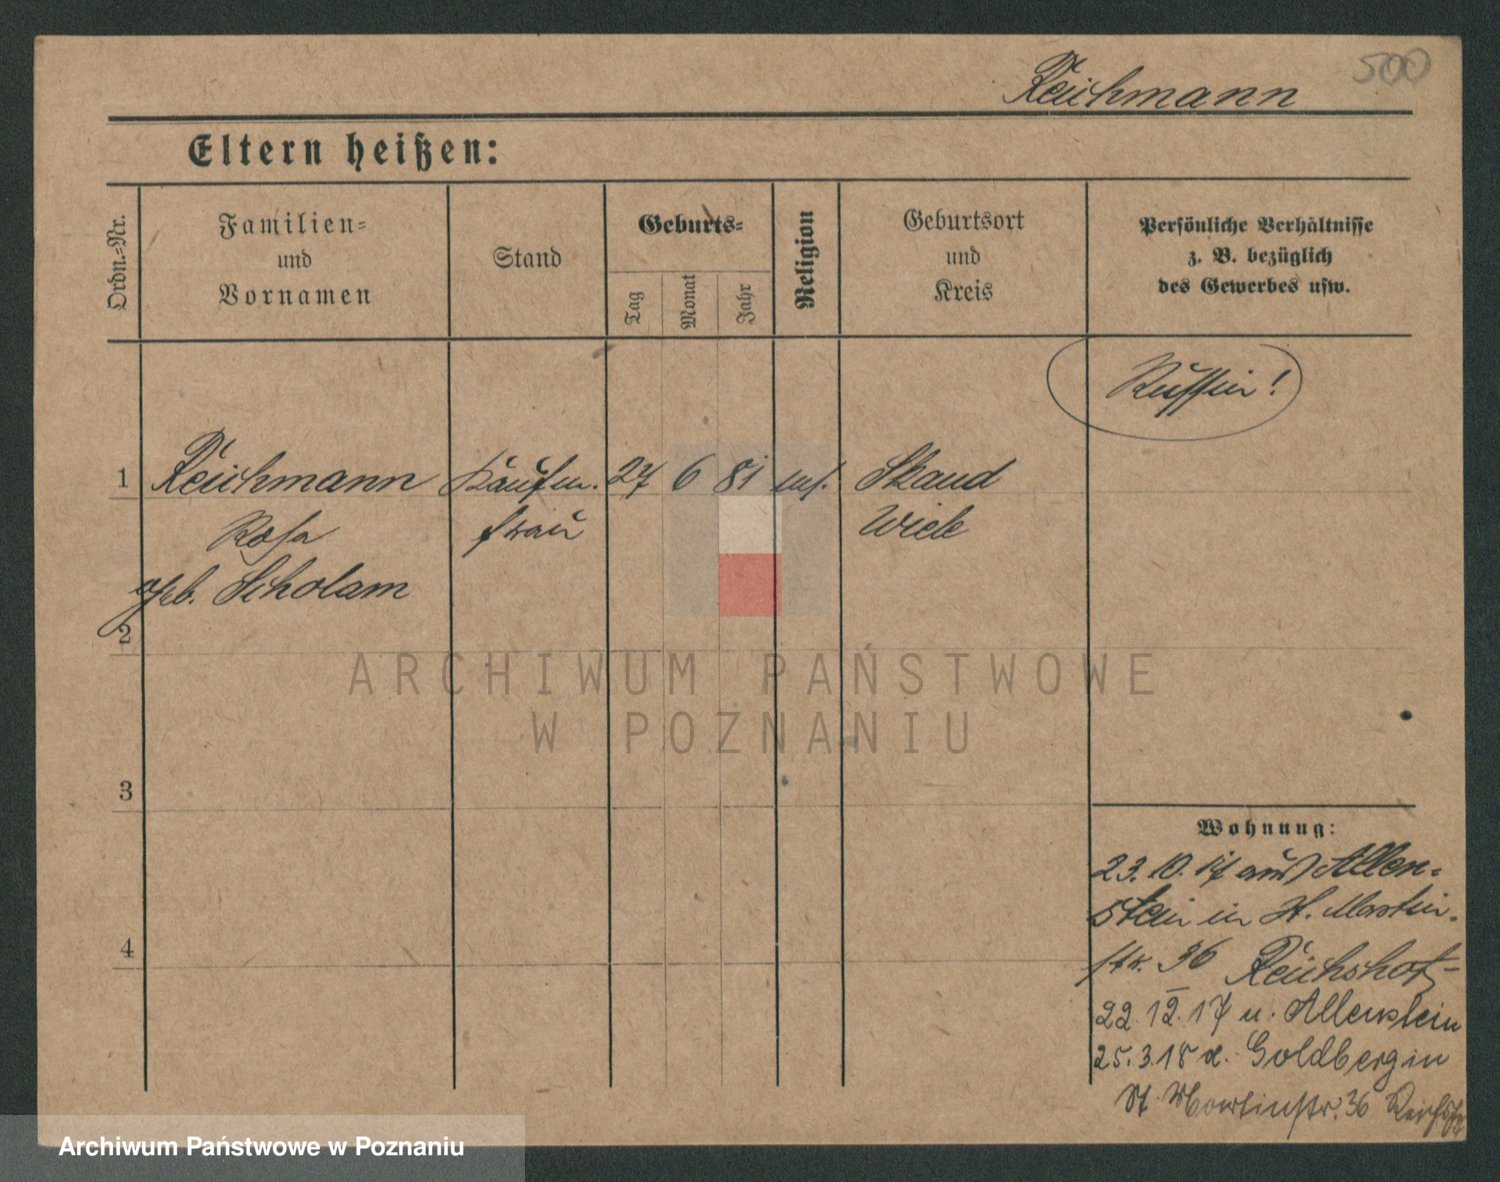 500
Reichmann
Eltern heißen:
Ordn.-Nr.
Familien-
und
Vornamen
Stand
Geburts-
Tag
Monat
Jahr
Religion
Geburtsort
und
Kreis
Persönliche Verhältnisse
z. B. bezüglich
des Gewerbes usw.
Russin!
1 Reichmann Kaufm. 27 6 81 Skaud
Rosa frau Wiele
geb. Scholam
2
3
4
ARCHIWUM PAŃSTWOWE
W POZNANIU
Wohnung:
23. 10. 17 aus Allen-
stein in St. Martin-
str. 36 Reichshof
22. 12. 17 n. Allenstein
25. 3. 18 Goldberg in
St. Martinstr. 36
Archiwum Państwowe w Poznaniu